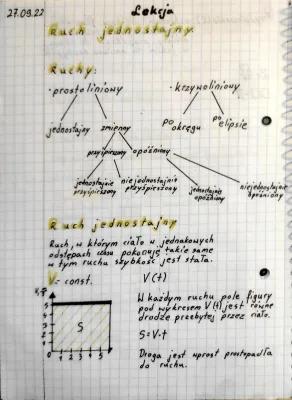 27.09.22
Lekcja
Ruch jednostajny.
Ruchy:
· prostoliniowy
· krzywoliniowy
jednostajny
zmienny
po okręgu
po elipsie
przyśpieszony
opóźniony
jednostajnie przyśpieszony
niejednostajnie przyśpieszony
jednostajnie opóźniony
niejednostajnie opóźniony
Ruch jednostajny
Ruch, w którym ciało w jednakowych
odstępach czasu pokonuje takie same
w tym ruchu szybkość jest stała.
V= const.
V(t)
5
4
3
2
1
S
0 1 2 3 4 5
W każdym ruchu pole figury
pod wykresem V(t) jest równe
drodze przebytej przez ciało.
S=V·t
Droga jest wprost
do ruchu.